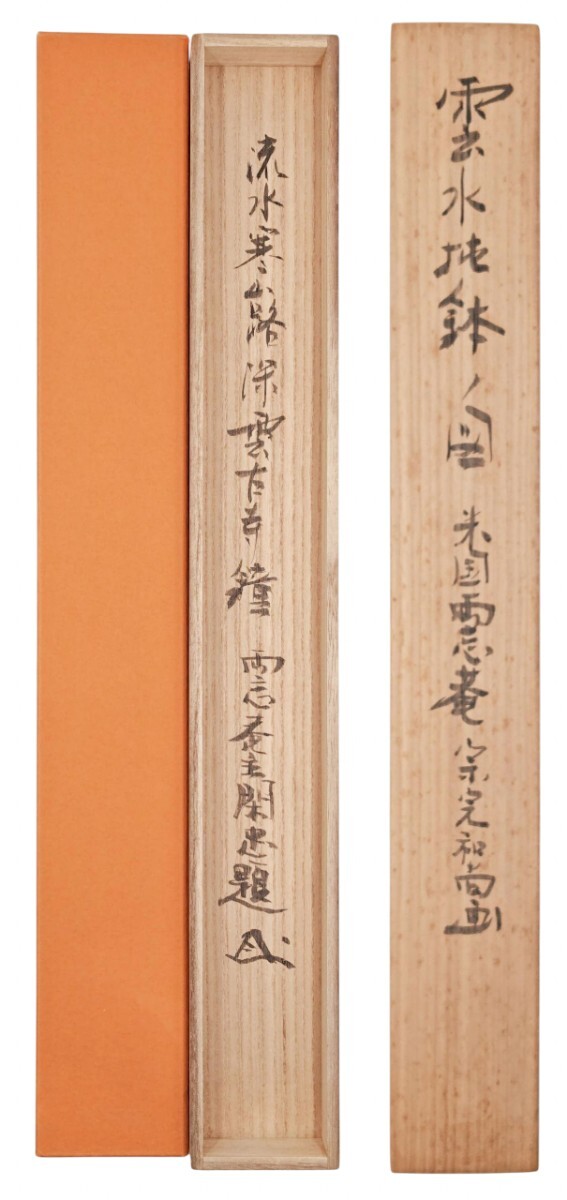 雲水托鉢ノ図 米国両忘菴宗完和尚画
流水寒山路深雲古寺鐘 両忘菴主閑忠題